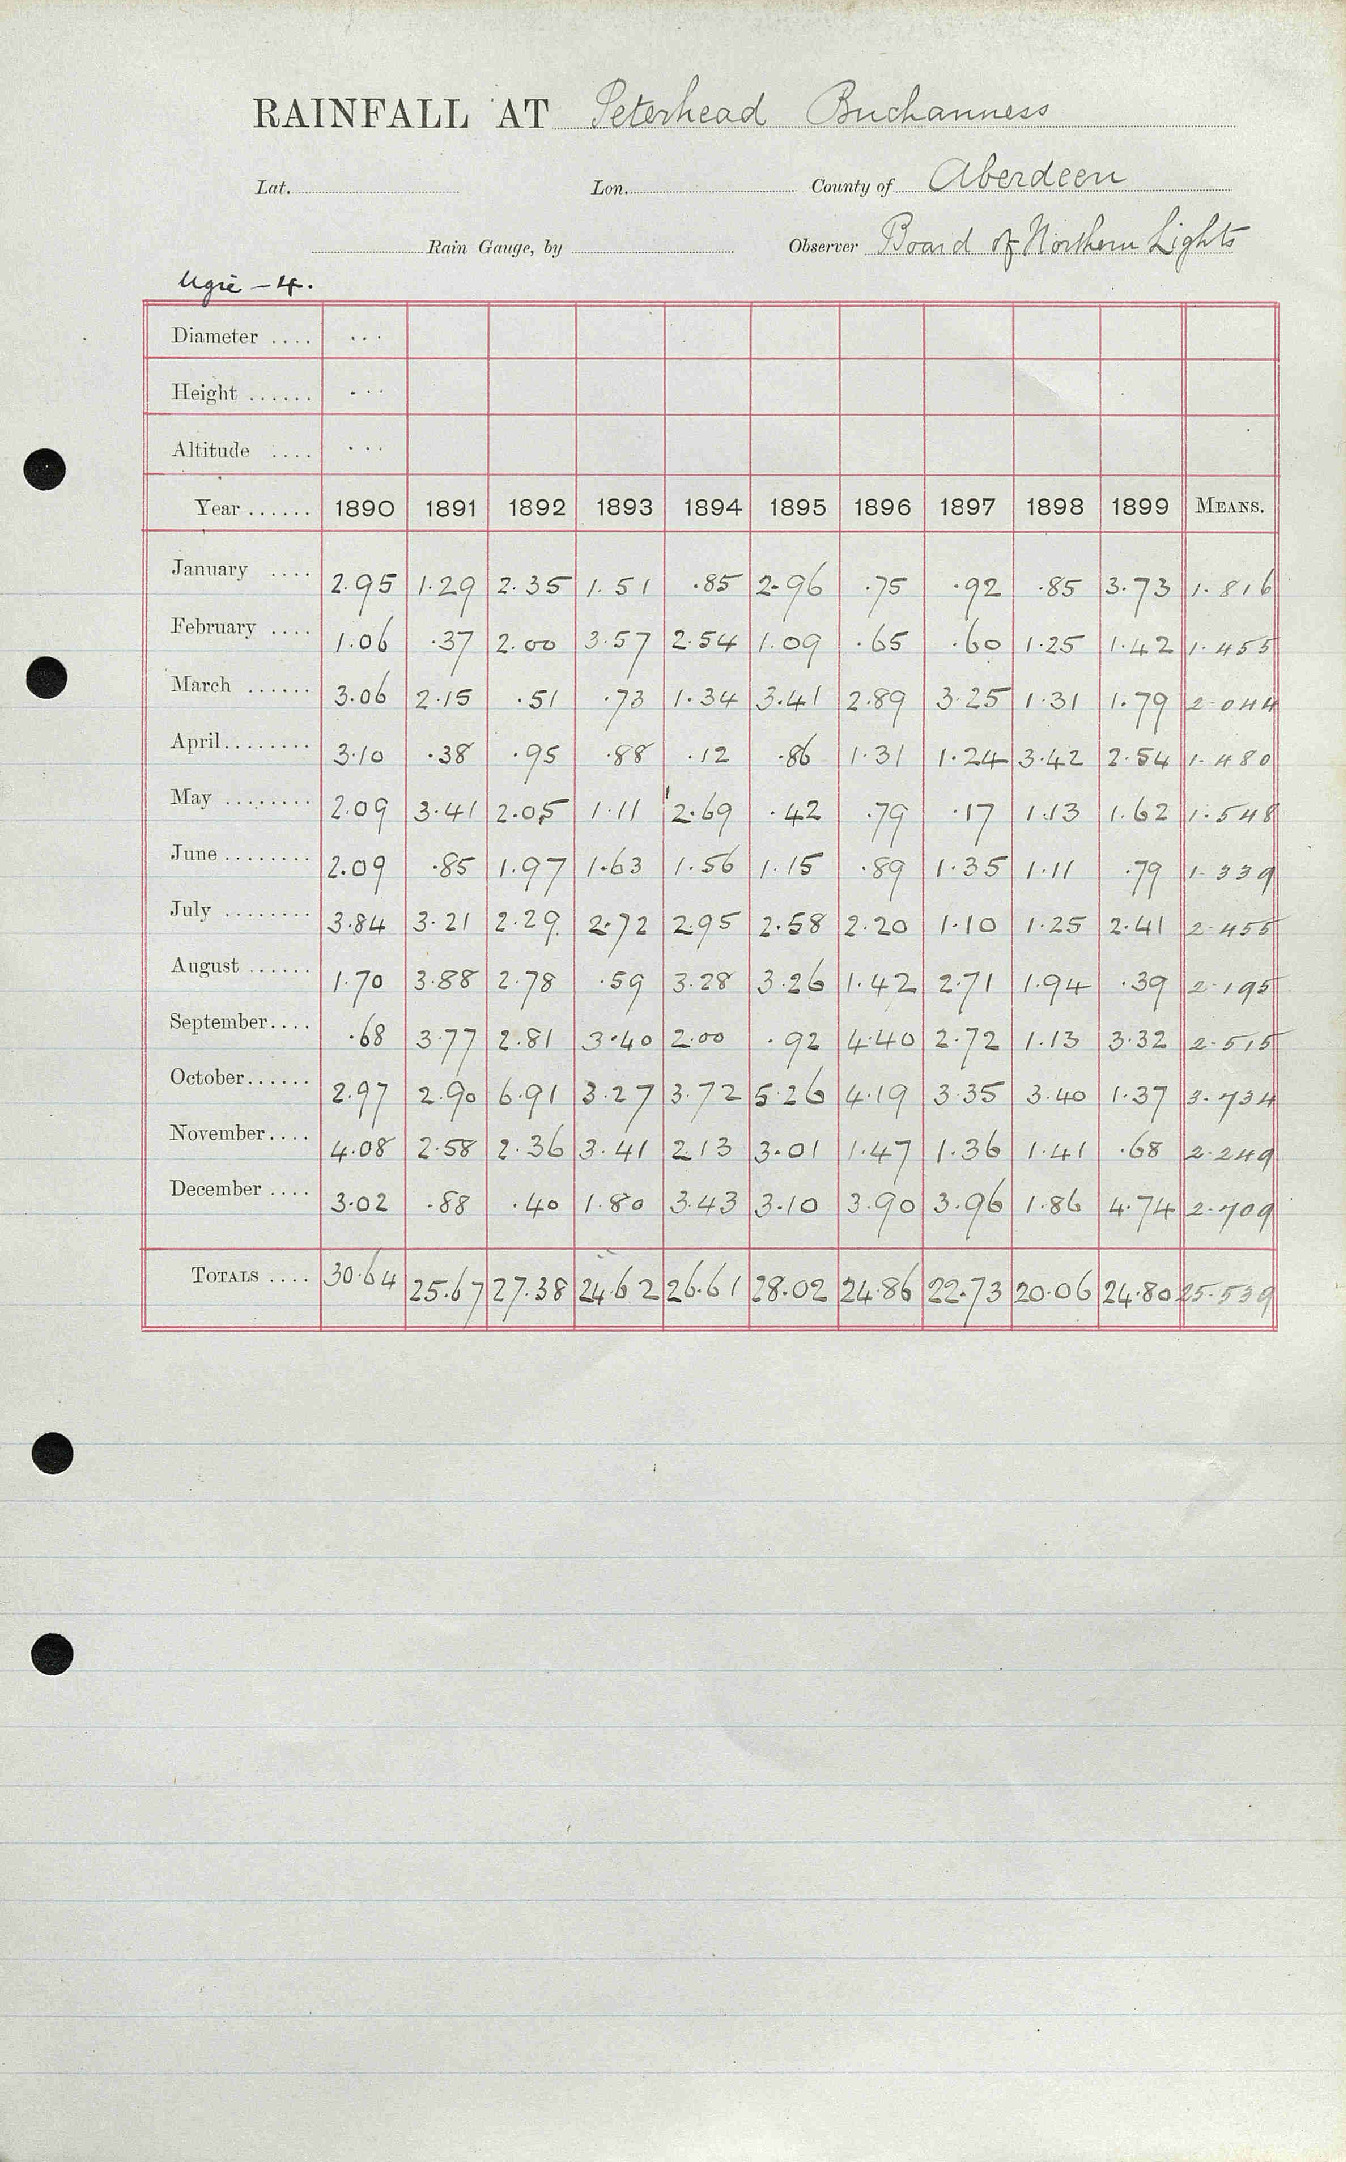 RAINFALL AT Peterhead Buchanness
Lat. Lon. County of Aberdeen
Rain Gauge, by Observer Board of Northern Lights
Ugie - 4.
Diameter .... ...
Height ...... ...
Altitude .... ...
Year ...... 1890 1891 1892 1893 1894 1895 1896 1897 1898 1899 MEANS.
January .... 2.95 1.29 2.35 1.51 .85 2.96 .75 .92 .85 3.73 1.816
February .... 1.06 .37 2.00 3.57 2.54 1.09 .65 .60 1.25 1.42 1.455
March ...... 3.06 2.15 .51 .73 1.34 3.41 2.89 3.25 1.31 1.79 2.044
April........ 3.10 .38 .95 .88 .12 .86 1.31 1.24 3.42 2.54 1.480
May ........ 2.09 3.41 2.05 1.11 2.69 .42 .79 .17 1.13 1.62 1.548
June ........ 2.09 .85 1.97 1.63 1.56 1.15 .89 1.35 1.11 .79 1.339
July ........ 3.84 3.21 2.29 2.72 2.95 2.58 2.20 1.10 1.25 2.41 2.455
August ...... 1.70 3.88 2.78 .59 3.28 3.26 1.42 2.71 1.94 .39 2.195
September.... .68 3.77 2.81 3.40 2.00 .92 4.40 2.72 1.13 3.32 2.515
October...... 2.97 2.90 6.91 3.27 3.72 5.26 4.19 3.35 3.40 1.37 3.734
November.... 4.08 2.58 2.36 3.41 2.13 3.01 1.47 1.36 1.41 .68 2.249
December .... 3.02 .88 .40 1.80 3.43 3.10 3.90 3.96 1.86 4.74 2.709
TOTALS .... 30.64 25.67 27.38 24.62 26.61 28.02 24.86 22.73 20.06 24.80 25.539